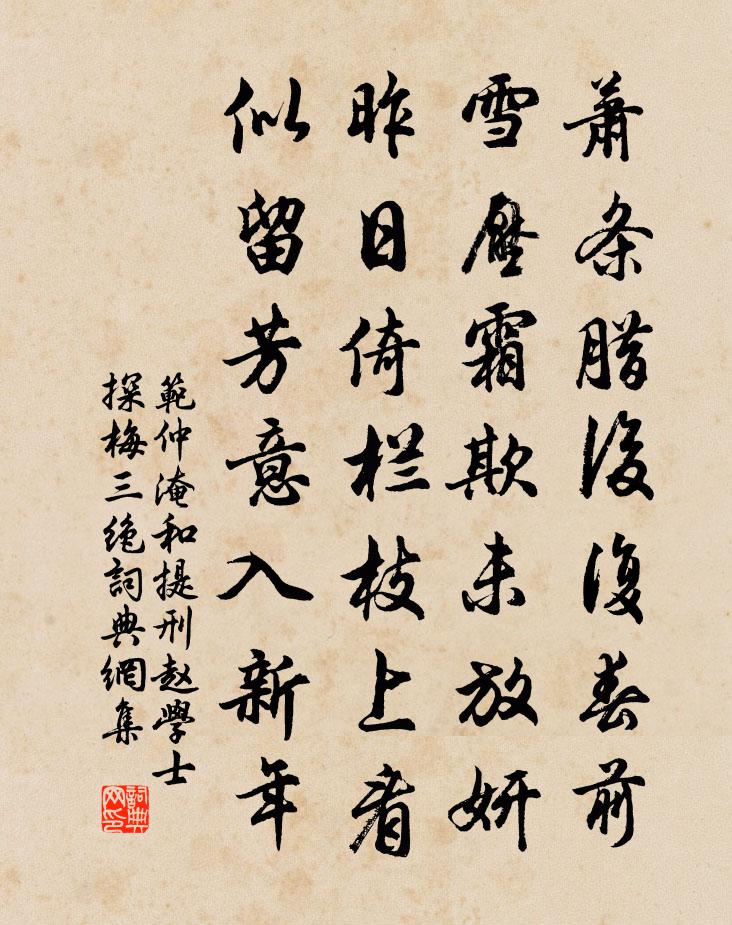 蕭条腊後復春前
雪壓霜欺未放妍
昨日倚栏枝上看
似留芳意入新年
範仲淹和提刑赵學士
探梅三绝詞典網集
詞典网印